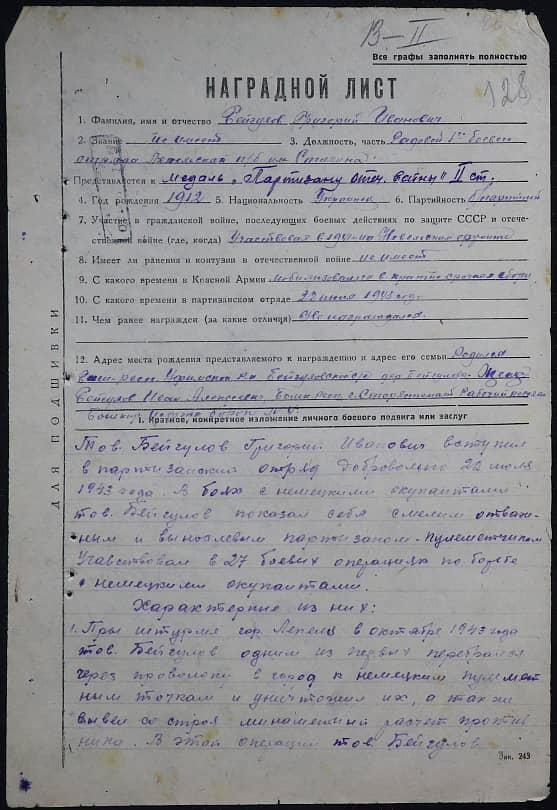 В-II
128
Все графы заполнять полностью
НАГРАДНОЙ ЛИСТ
1. Фамилия, имя и отчество Бейгулов Григорий Иванович
2. Звание не имеет 3. Должность, часть Рядовой 1го боевого
отряда Лепельской п/б им Сталина
Представляется к медаль „Партизану отеч. войны" II ст.
4. Год рождения 1912 5. Национальность 6. Партийность
7. Участие в гражданской войне, последующих боевых действиях по защите СССР и отече-
ственной войне (где, когда) Участвовал в 1941 на фронте
8. Имеет ли ранения и контузии в отечественной войне не имеет
9. С какого времени в Красной Армии мобилизовался в
10. С какого времени в партизанском отряде 22 июля 1943 года
11. Чем ранее награжден (за какие отличия) Не награждался
12. Адрес места рождения представляемого к награждению и адрес его семьи Родился
дер. Отец
Бейгулов Иван Алексеевич
1. Краткое, конкретное изложение личного боевого подвига или заслуг
Тов. Бейгулов Григорий Иванович вступил
в партизанский отряд добровольно 22 июля
1943 года. В боях с немецкими окупантами
тов. Бейгулов показал себя смелим отваж-
ным и выносливым партизаном-пулеметчиком
Учавствовал в 27 боевых операциях по борьбе
с немецкими окупантами.
Характерные из них:
1. При штурмя гор. Лепеля в октябре 1943 года
тов. Бейгулов одним из первых перебрался
через проволоку в город к немецким пулемет
ным точкам и уничтожил их, а так жи
вывел со строя минаметный расчет против
ника. В этой операции тов. Бейгулов
Зак. 243
ДЛЯ ПОДШИВКИ